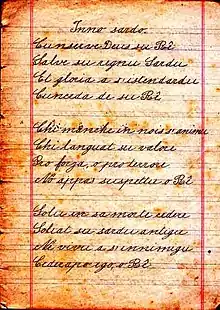 Inno sardo.
Cunservet Deus su Re
Salve su regnu Sardu
Et gloria a s'istendardu
Conceda de su Re

Chi manchet in nois s'animu
Chi languat su valore
Pro forza, o pro terrore
No appas suspettu o Re

Solu in sa morte cedere
Soliat su sardu antigu
Ne vivu a s'innimigu
Cedera pro ego, o Re